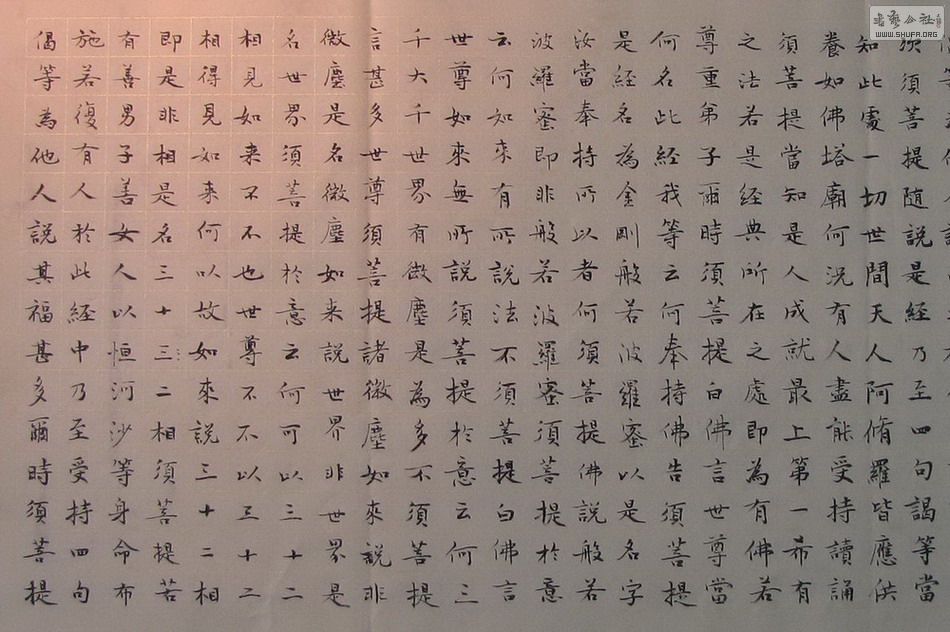 書藝公社
WWW.SHUFA.ORG
須菩提随說是經乃至四句謁等當
知此處一切世間天人阿脩羅皆應供
養如佛塔廟何況有人盡能受持讀誦
須菩提當知是人成就最上第一希有
之法若是経典所在之處即為有佛若
尊重弟子爾時須菩提白佛言世尊當
何名此經我等云何奉持佛告須菩提
是經名為金剛般若波羅蜜以是名字
汝當奉持所以者何須菩提佛說般若
波羅蜜即非般若波羅蜜須菩提於意
云何知来有所說法不須菩提白佛言
世尊如來無所說須菩提於意云何三
千大千世界有微塵是為多不須菩提
言甚多世尊須菩提諸微塵如來說非
微塵是名微塵如来說世界非世界是
名世界須菩提於意云何可以三十二
相見如来不不也世尊不不以三十二
相得見如来何以故如來說三十二相
即是非相是名三十三二相須菩提若
有善男子善女人以恒河沙等身命布
施若復有人於此経中乃至受持四句
偈等為他人說其福甚多爾時須菩提